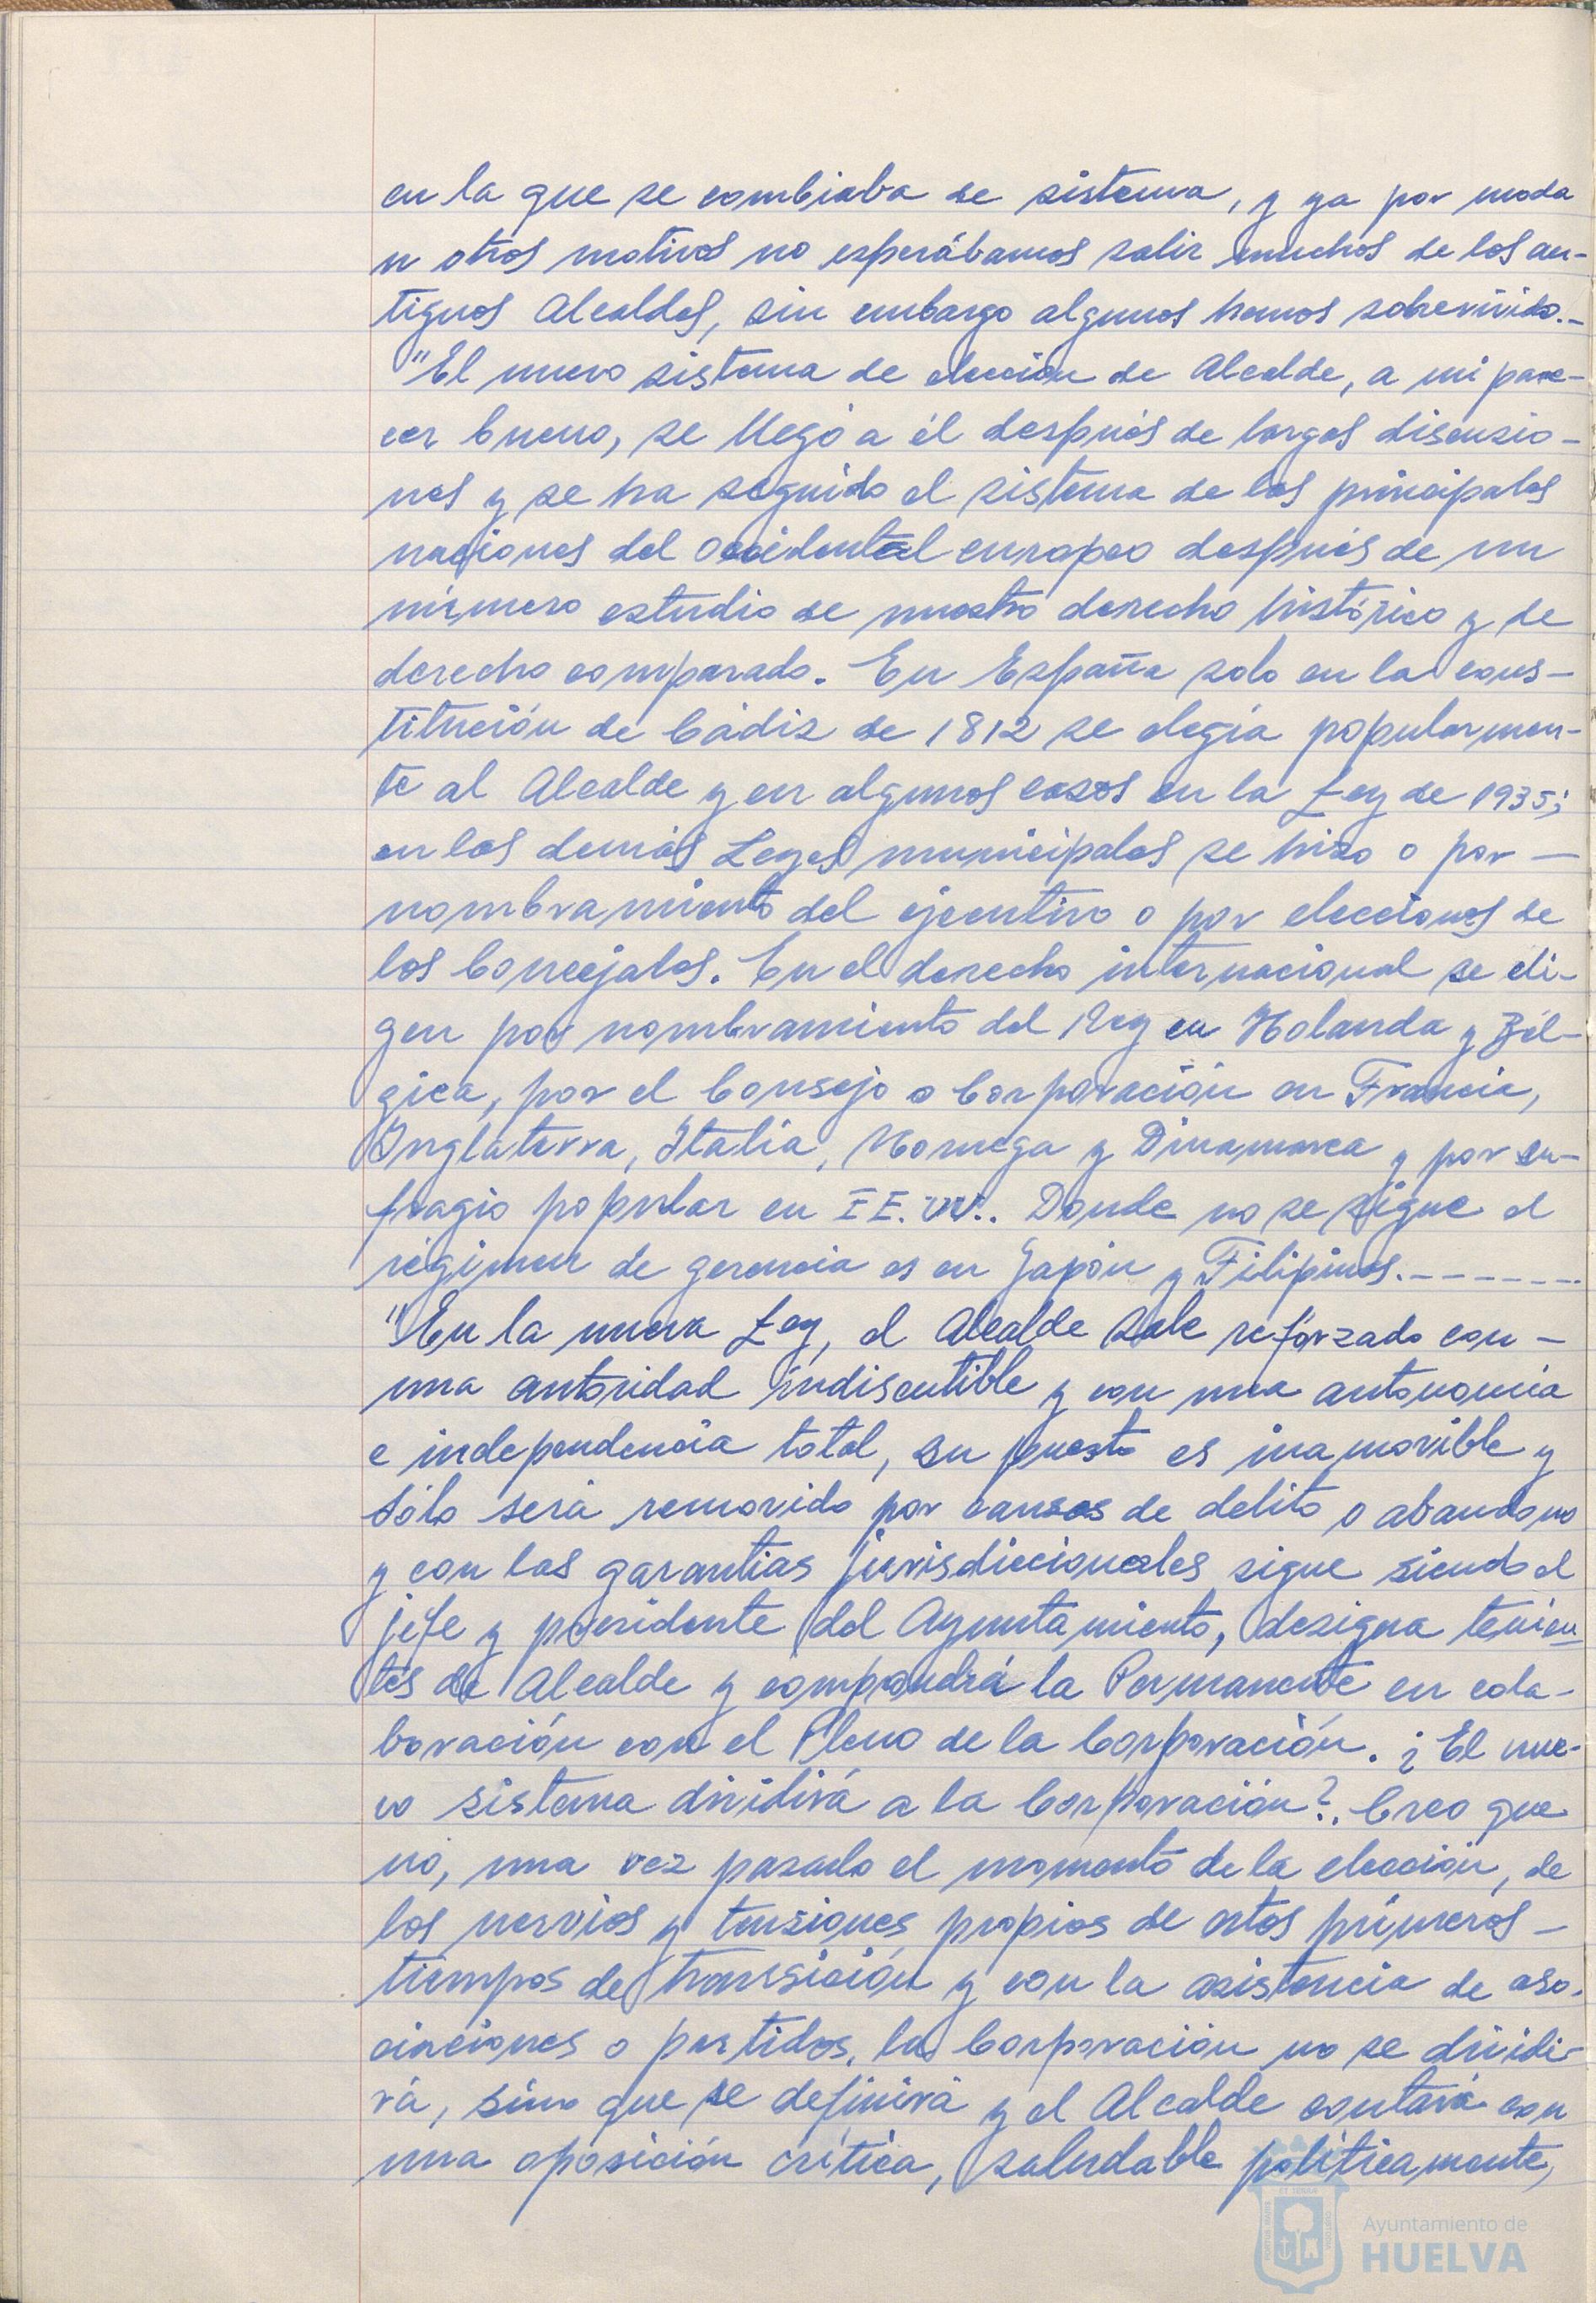 en la que se cambiaba de sistema, y ya por moda
u otros motivos no esperábamos salir muchos de los an-
tiguos Alcaldes, sin embargo algunos hemos sobrevivido.-
"El nuevo sistema de elección de Alcalde, a mi pare-
cer bueno, se llegó a él después de largas discusio-
nes y se ha seguido el sistema de las principales
naciones del Occidental europeo después de un
número estudio de nuestro derecho histórico y de
derecho comparado. En España solo en la cons-
titución de Cádiz de 1812 se elegía popularmen-
te al Alcalde y en algunos casos en la Ley de 1935;
en las demás Leyes municipales se hizo o por -
nombramiento del ejecutivo o por elecciones de
los Concejales. En el derecho internacional se eli-
gen por nombramiento del Rey en Holanda y Bél-
gica, por el Consejo o Corporación en Francia,
Inglaterra, Italia, Noruega y Dinamarca y por su-
fragio popular en EE.UU.. Donde no se sigue el
régimen de gerencia es en Japón y Filipinas.-------
"En la nueva Ley, el Alcalde sale reforzado con -
una autoridad indiscutible y con una autonomía
e independencia total, su puesto es inamovible y
sólo será removido por causas de delito o abandono
y con las garantías jurisdiccionales sigue siendo el
jefe y presidente del Ayuntamiento, designa tenien-
tes de Alcalde y compondrá la Permanente en cola-
boración con el Pleno de la Corporación. ¿El nue-
vo sistema dividirá a la Corporación?. Creo que
no, una vez pasado el momento de la elección, de
los nervios y tensiones propios de estos primeros -
tiempos de transsición y con la asistencia de aso-
ciaciones o partidos, la Corporación no se dividi-
rá, sino que se definirá y el Alcalde contará con
una oposición crítica, saludable políticamente,
Ayuntamiento de
HUELVA